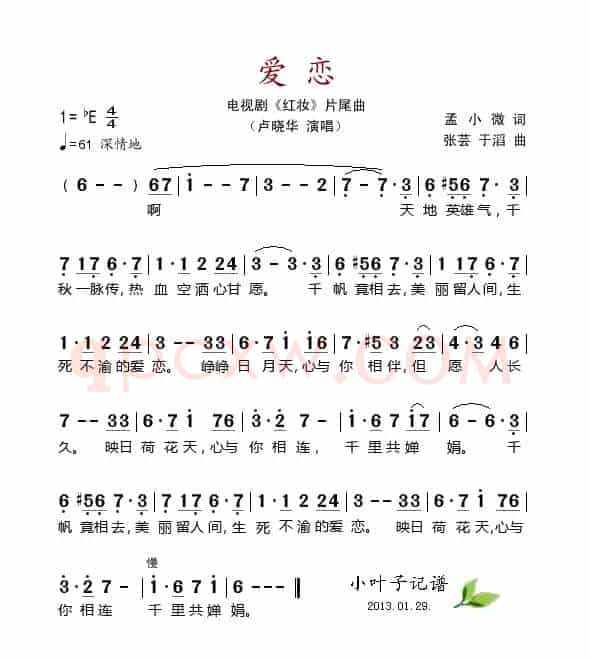 爱 恋
电视剧《红妆》片尾曲
（卢晓华 演唱）
1=♭E 4/4
♩=61 深情地
孟 小 微 词
张芸 于滔 曲
( 6 - - ) 67 | 1 - - 7 | 3 - - 2 | 7 - 7 · 3 | 6 #56 7 · 3 |
啊 天 地 英雄气，千
7 17 6 · 7 | 1 · 1 2 24 | 3 - 3 · 3 | 6 #56 7 · 3 | 7 17 6 · 7 |
秋一脉传，热 血 空 洒心甘 愿。 千 帆 竟相去，美 丽留人间，生
1 · 1 2 24 | 3 - - 33 | 6 · 7 1 16 | 7 · #5 3 23 | 4 · 3 4 6 |
死 不渝 的爱 恋。 峥峥 日 月天，心与 你 相伴，但 愿 人长
7 - - 33 | 6 · 7 1 76 | 3 · 2 7 - | 1 · 6 7 17 | 6 - 6 · 3 |
久。 映日 荷 花天，心与 你 相连， 千 里共婵 娟。 千
6 #56 7 · 3 | 7 17 6 · 7 | 1 · 1 2 24 | 3 - - 33 | 6 · 7 1 76 |
帆 竟相去，美 丽留人间，生 死 不渝的爱 恋。 映日 荷 花天，心与
慢
3 · 2 7 - | 1 · 6 7 1 | 6 - - - ‖
你 相连 千 里共婵 娟。
小叶子记谱
2013.01.29.
qpcxw.com